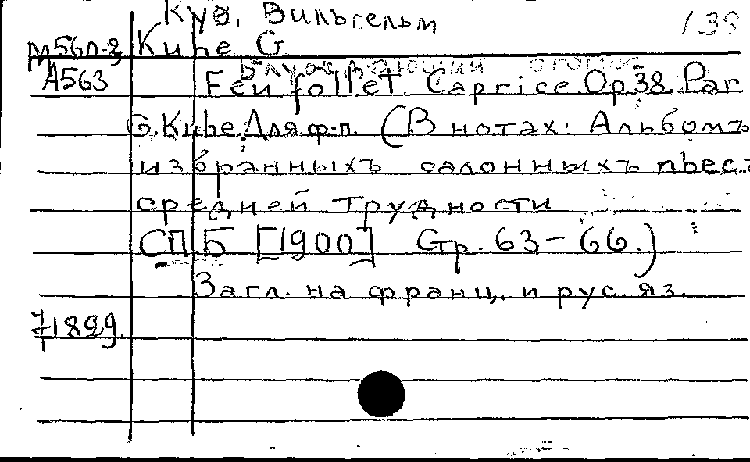 Куэ, Вильгельм 138
М560-3 Kuhe G
А563 Блуждающий огонек
Feu follet Caprice Op38. Par
G. Kuhe. Для ф-п. (В нотах: Альбомъ
избранныхъ салонныхъ пьес
средней трудности
СПБ [1900] Стр. 63-66.)
Загл. на франц. и рус. яз.
71899